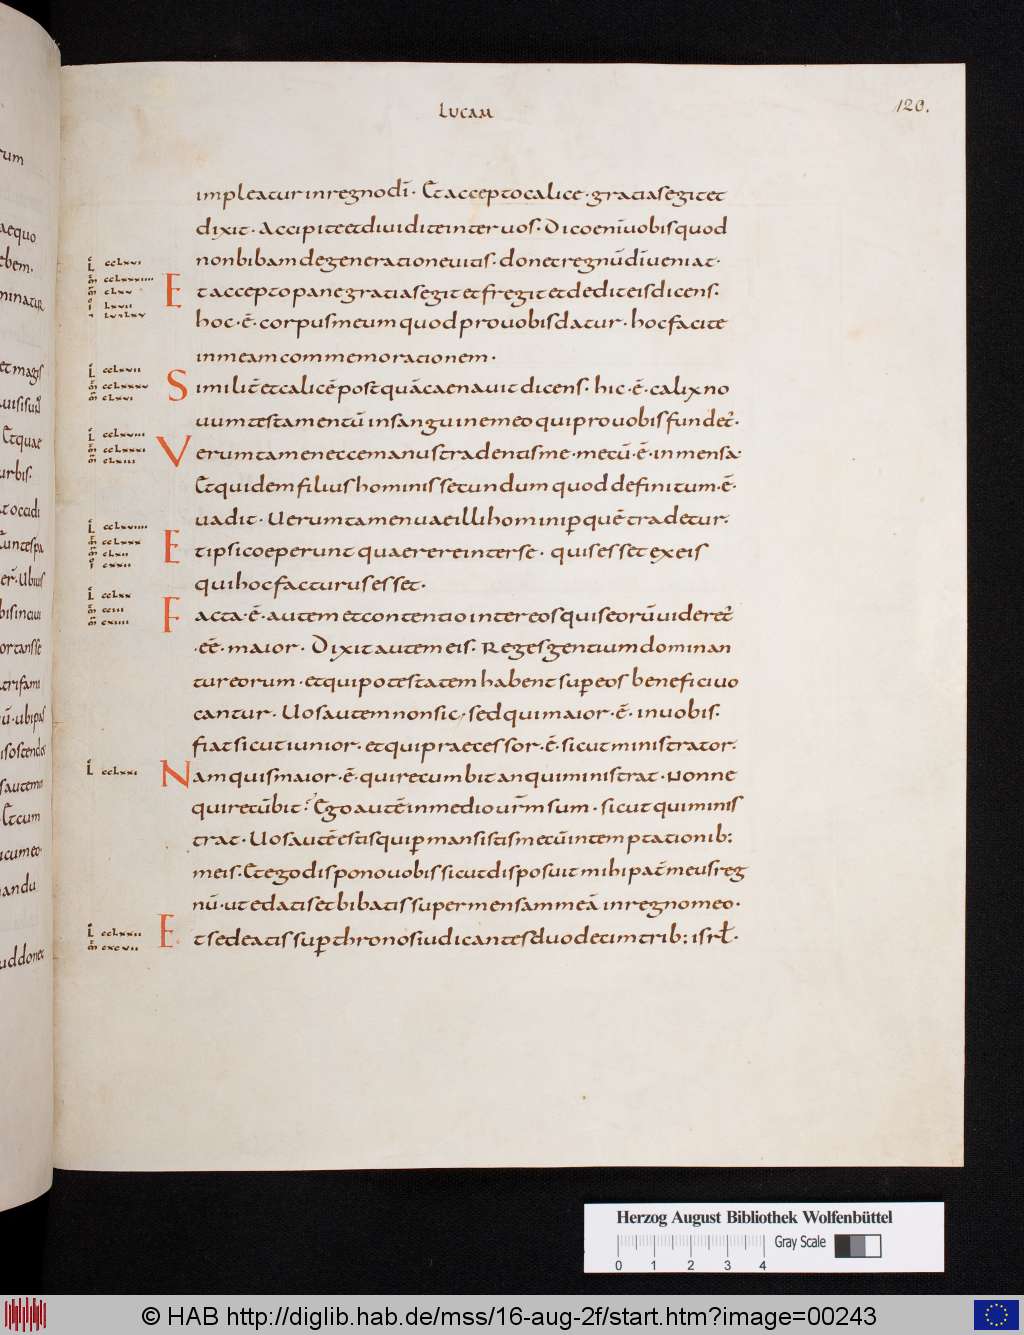 LUCAM
120.
impleatur in regno dī. Et accepto calice. gratias egit et
dixit. Accipite et diuidite inter uos. Dico enī uobis quod
non bibam de generatione uitis. donec regnū dī ueniat.
Et accepto pane gratias egit et fregit et dedit eis dicens.
hoc. ē. corpus meum quod pro uobis datur. hoc facite
in meam commemorationem.
Similit̄ et calicē postquā caenauit dicens. hic. ē. calix no
uum testamentū in sanguine meo qui pro uobis fundet̄.
Verum tamen ecce manus tradentis me. mecū. ē. in mensa.
Et quidem filius hominis secundum quod definitum. ē.
uadit. Uerum tamen uae illi homini p̄ quē tradetur.
Et ipsi coeperunt quaerere inter se. quis esset ex eis
qui hoc facturus esset.
Facta. ē. autem et contentio inter eos quis eorū uideret̄
.eē. maior. Dixit autem eis. Reges gentium dominan
tur eorum. et qui potestatem habent sup̄ eos benefici uo
cantur. Uos autem non sic, sed qui maior. ē. in uobis.
fiat sicut iunior. et qui praecessor. ē. sicut ministrator.
Nam quis maior. ē. qui recumbit an qui ministrat. Nonne
qui recūbit? Ego autē in medio ur̄m sum. sicut qui minis
trat. Uos autē estis qui p̄mansistis mecū in temptationib:
meis. Et ego dispono uobis sicut disposuit mihi pat̄ meus reg
nū. ut edatis et bibatis super mensam meā in regno meo.
Et sedeatis sup̄ thronos iudicantes duodecim trib: isrł.
L ccLxvi
L ccLxvii
L ccLxviii
L ccLxviiii
L ccLxx
L ccLxxi
L ccLxxii
Herzog August Bibliothek Wolfenbüttel
Gray Scale
0 1 2 3 4
© HAB http://diglib.hab.de/mss/16-aug-2f/start.htm?image=00243